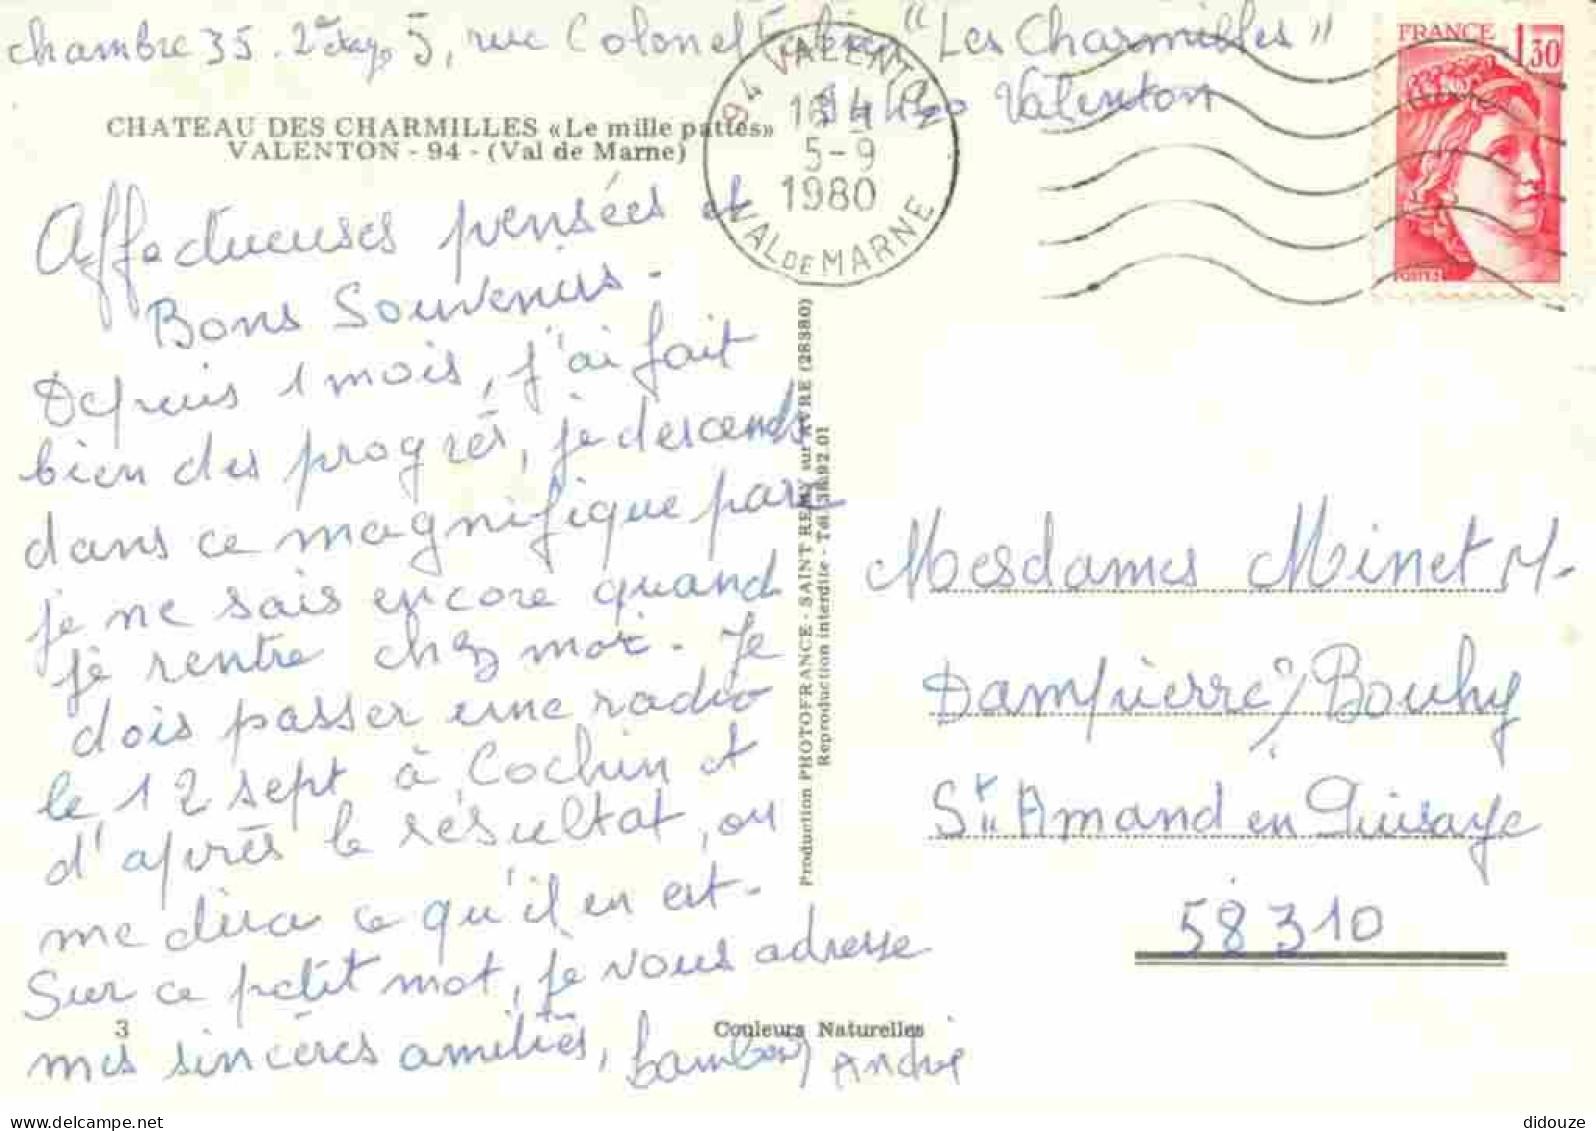 chambre 35. 2e étage 5, rue Colonel Fabien "Les Charmilles"
94460 Valenton
FRANCE
1,30
POSTES
94 VALENTON
16 H
5-9
1980
VAL DE MARNE
CHATEAU DES CHARMILLES «Le mille pattes»
VALENTON - 94 - (Val de Marne)
Affectueuses pensées et
Bons Souvenirs.
Depuis 1 mois, j'ai fait
bien des progrés, je descends
dans ce magnifique parc
je ne sais encore quand
je rentre chez moi. Je
dois passer une radio
le 12 sept à Cochin et
d'aprés le résultat, on
me dira ce qu'il en est.
Sur ce petit mot, je vous adresse
mes sincères amitiés,
André
3
Couleurs Naturelles
Production PHOTOFRANCE - SAINT REMY sur AVRE (28380)
Reproduction interdite - Tél.
Mesdames Minet M.
Dampierre s/ Bouhy
St Amand en Puisaye
58310
delcampe.net
didouze